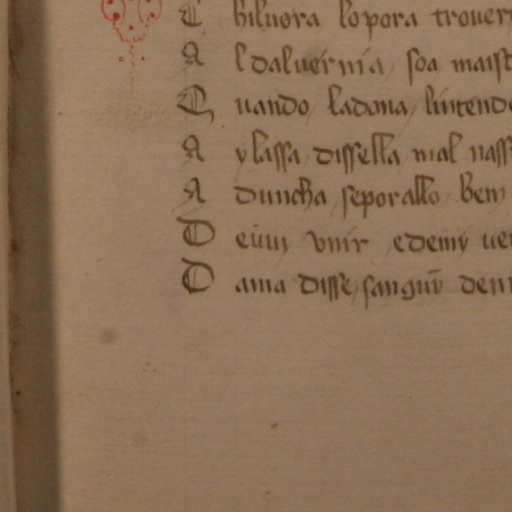 C hiluora lo pora trouer
A l daluernia soa maist
Q uando la dama lintend
A y lassa dissella mal nass
A duncha se poralo ben
D e cui vnir e demi ue
D ama disse sangui den